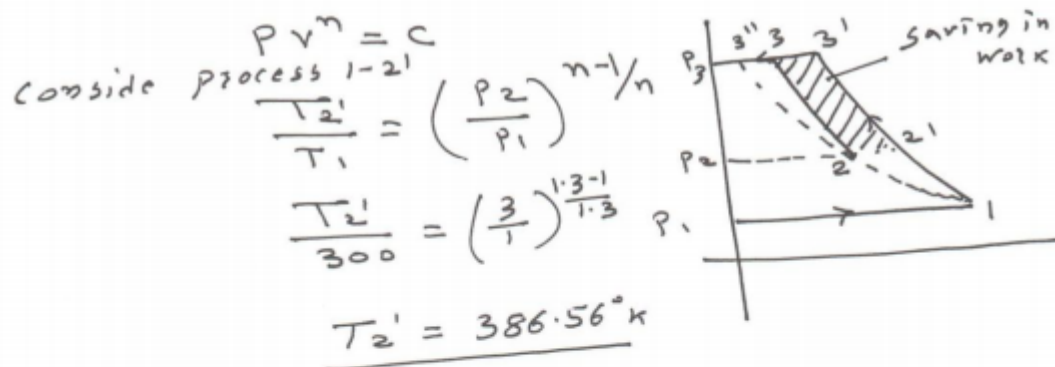 P vⁿ = c
conside process 1-2'
T2' / T1 = (P2 / P1)^n-1/n
T2' / 300 = (3 / 1)^1.3-1 / 1.3
T2' = 386.56°K
saving in
work
P3 3" 3 3'
2'
P2 2
P1 1